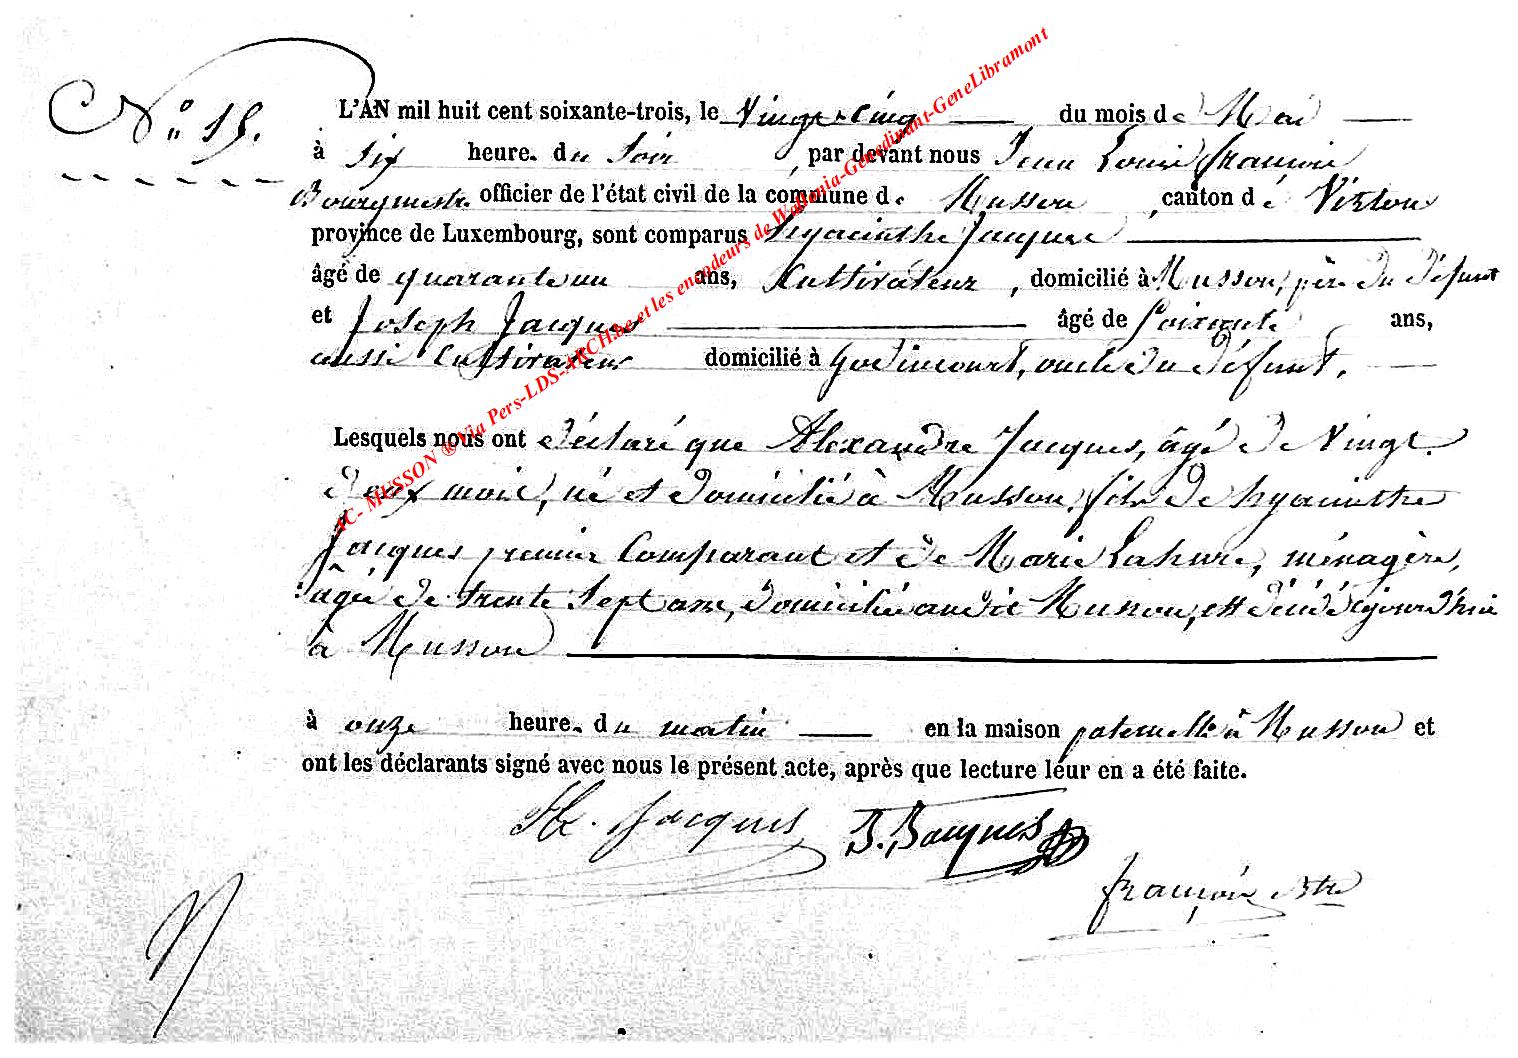 N° 15.
L'AN mil huit cent soixante-trois, le Vingt-cinq du mois de Mai
à six heure. du soir, par devant nous Jean Louis françois
Bourgmestre officier de l'état civil de la commune de Musson, canton de Virton
province de Luxembourg, sont comparus hyacinthe Jacques
âgé de quarante un ans, Cultivateur, domicilié à Musson, père du défunt
et Joseph Jacques âgé de soixante ans,
aussi Cultivateur domicilié à Godincourt, oncle du défunt.
Lesquels nous ont déclaré que Alexandre Jacques, âgé de Vingt-
deux mois, né et domicilié à Musson, fils de hyacinthe
Jacques premier Comparant et de Marie Lahure, ménagère,
âgée de trente sept ans, domiciliée audit Musson, est décédé ajourd'hui
à Musson
à onze heure. du matin en la maison paternelle à Musson et
ont les déclarants signé avec nous le présent acte, après que lecture leur en a été faite.
Hte. Jacques J. Jacques
françois Btre
AC- MUSSON ® Via Pers-LDS-ARCH.be et les encodeurs de Wallonia-Genedinant-GeneLibramont